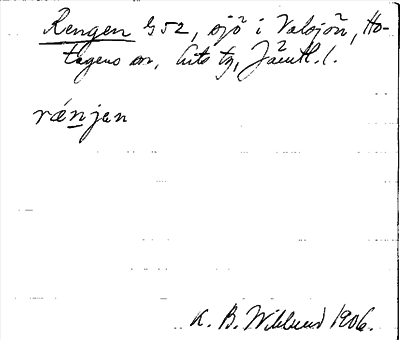 Rengen G52, sjö i Valsjön, Ho-
tagens sn, Lits tg, Jämtl. l.
rǽnjen
K. B. Wiklund 1906.